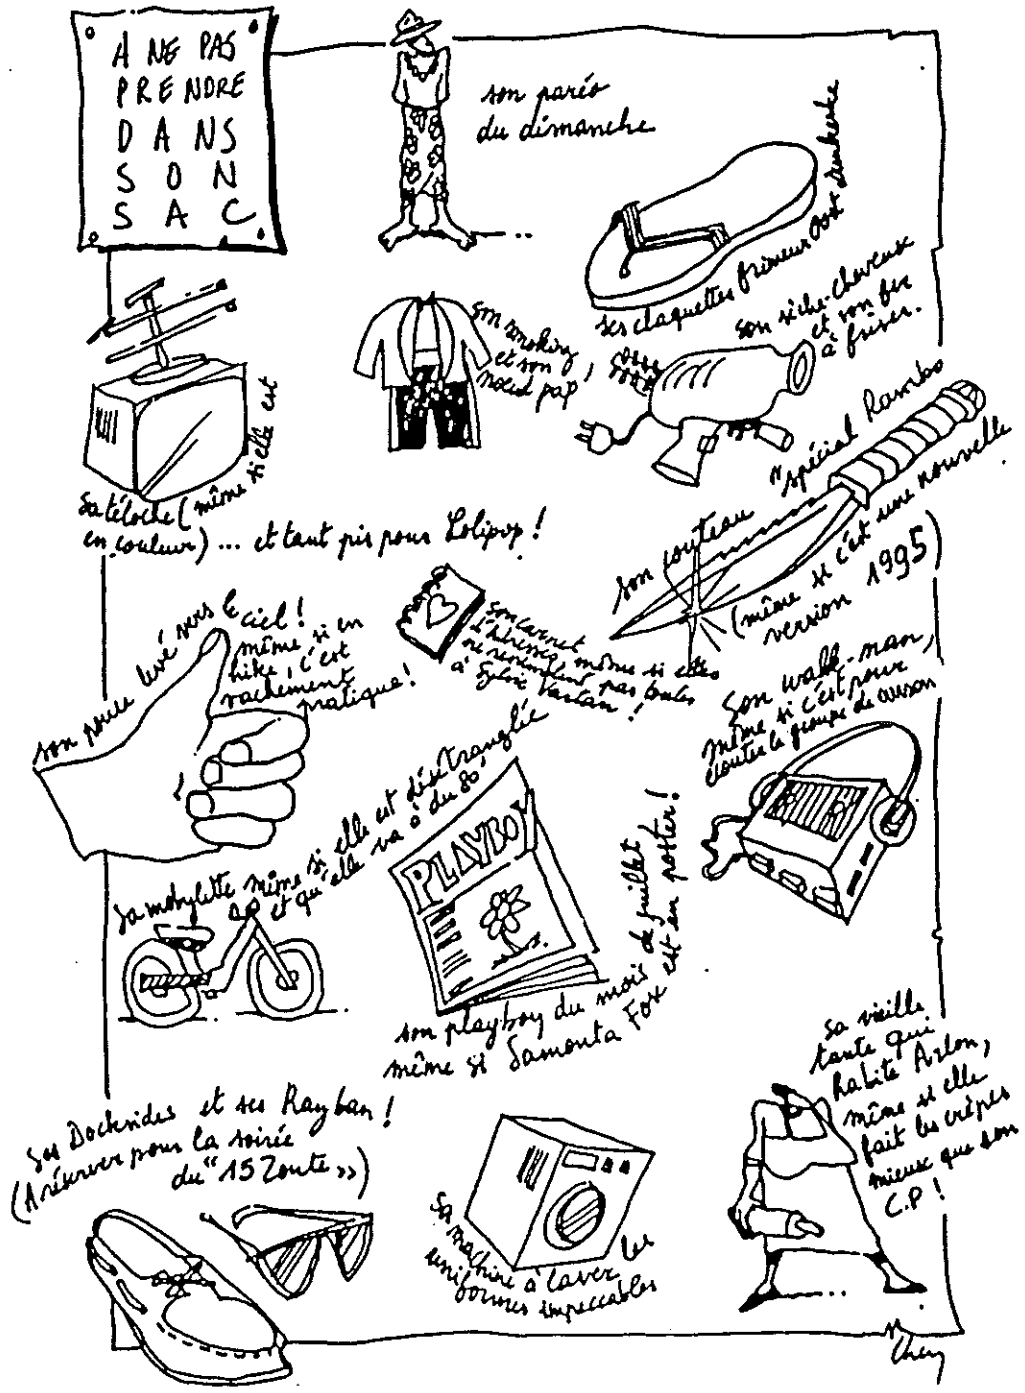 A NE PAS
PRENDRE
DANS
SON
SAC
son paréo
du dimanche
ses claquettes frimeur Oost dunkerke
son sèche-cheveux
et son fer
à friser.
son smoking
et son
noeud pap'
sa téloche (même si elle est
en couleur) ... et tant pis pour Lolipop !
son couteau "spécial Rambo
(même si c'est une nouvelle
version 1995)
son pouce levé vers le ciel !
même si en
hike, c'est
vachement
pratique !
son carnet
d'adresses, même si elles
ne ressemblent pas toutes
à Sylvie Vartan !
son walk-man,
même si c'est pour
écouter le groupe de
sa mobylette même si elle est désétranglée
et qu'elle va à du 80,
PLAYBOY
son playboy du mois de juillet
même si Samanta Fox est en poster !
Ses Docksides et ses Rayban !
(A réserver pour la soirée
du "15 Zoute")
Sa machine à laver les
uniformes impeccables
Sa vieille
tante qui
habite Arlon,
même si elle
fait les crêpes
mieux que son
C.P !